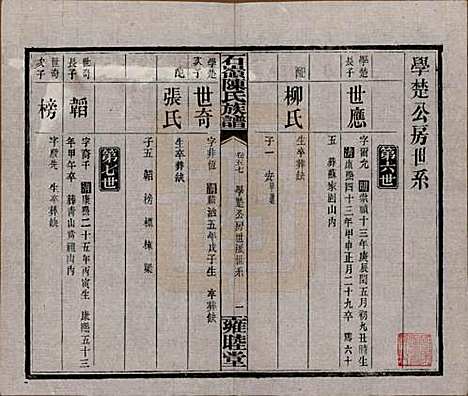 學楚公房世系
第六世
學楚長子
世應
字爾允 明崇禎十三年庚辰閏五月初九丑時生
清康熙四十三年甲申正月二十九卒 馬六十
五 葬蘇家園山內
配
柳氏
子一
石嶺陳氏族譜
卷七 學楚公房世系
一
雍睦堂
學楚次子
世奇
字非恆 順治五年戊子生 卒葬缺
配
張氏
生卒葬缺
子五 韜 榜 標 棟 梁
第七世
世奇長子
韜
字裔千 清康熙二十五年丙寅生 康熙五十三
年甲午卒 葬青山
南祖山內
世奇次子
榜
字殿先 生卒葬缺